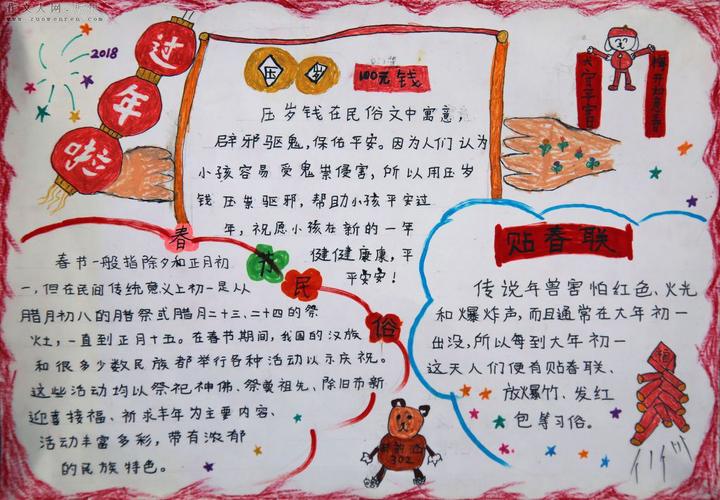 www.zuowenren.com
2018
过年啦
压岁
100元钱
压岁钱在民俗文中寓意,
辟邪驱鬼,保佑平安。因为人们认为
小孩容易受鬼祟侵害,所以用压岁
钱压祟驱邪,帮助小孩平安过
年,祝愿小孩在新的一年
健健康康,平
平安安!
春节民俗
春节一般指除夕和正月初
一,但在民间传统意义上初一是从
腊月初八的腊祭或腊月二十三、二十四的祭
灶,一直到正月十五。在春节期间,我国的汉族
和很多少数民族都举行各种活动以示庆祝。
这些活动均以祭祀神佛、祭奠祖先、除旧布新
迎喜接福、祈求丰年为主要内容、
活动丰富多彩,带有浓郁
的民族特色。
贴春联
传说年兽害怕红色、火光
和爆炸声,而且通常在大年初一
出没,所以每到大年初一
这天人们便有贴春联、
放爆竹、发红
包等习俗。
302